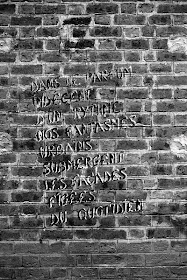 DANS LE PARFUM
INDÉCENT
D'UN RYTHME
NOS FANTASMES
URBAINS
SUBMERGENT
LES FAÇADES
FIGÉES
DU QUOTIDIEN